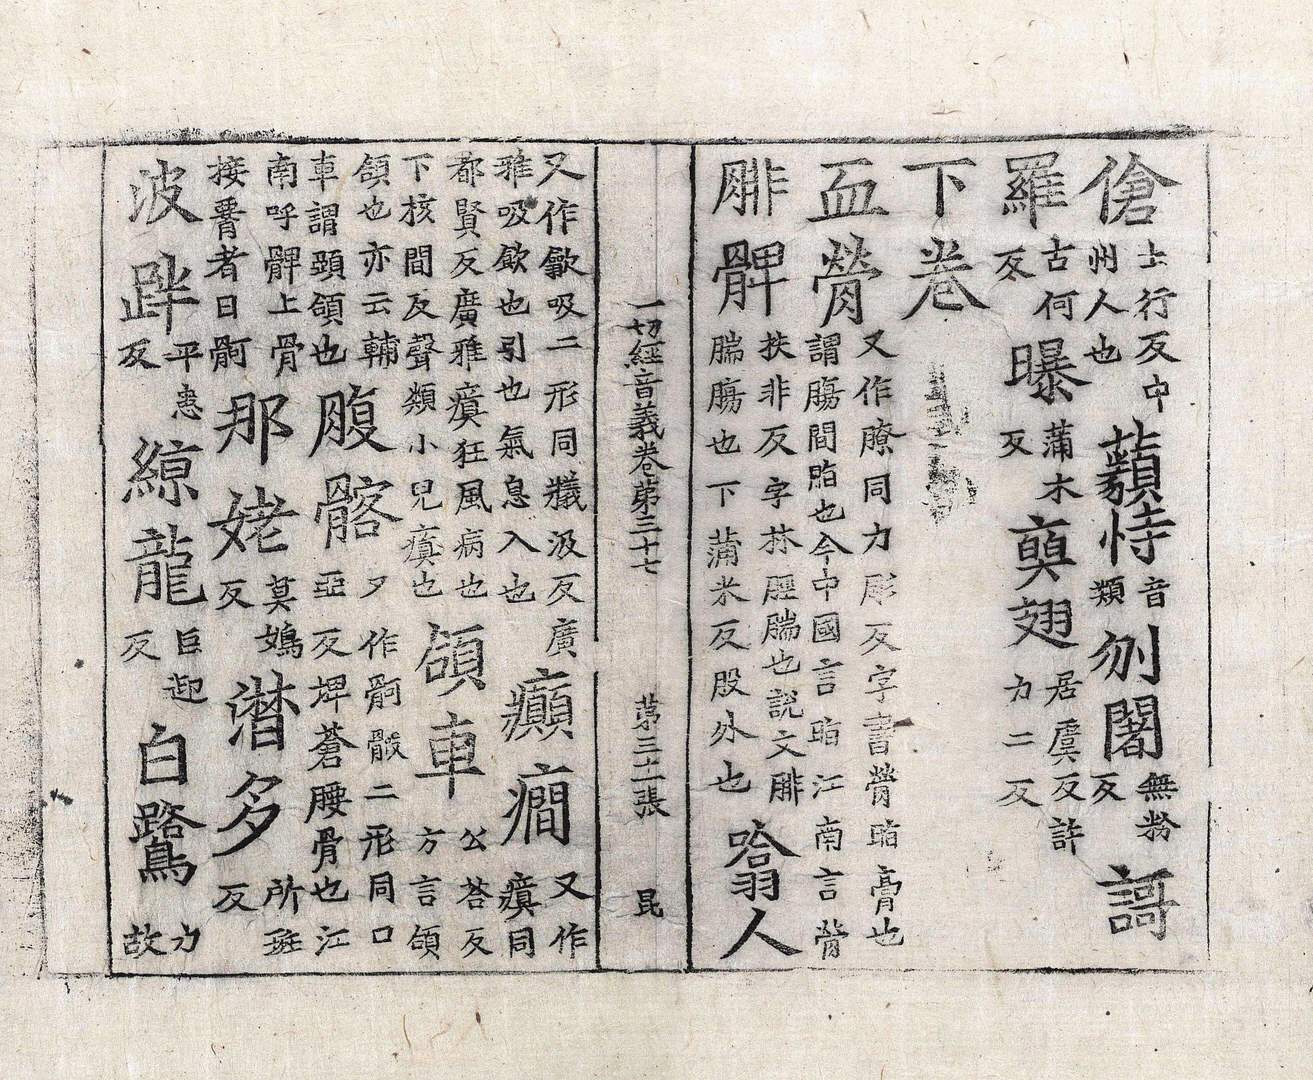 傖士行反中州人也藾恃音類刎闍無粉反謌
羅古何反曝蒲木反奭翅居虞反許力二反
下卷
血膋又作膫同力彫反字書膋脂膏也謂腸間脂也今中國言脂江南言膋
腓髀扶非反字林脛腨也說文腓腨腸也下蒲米反股外也噏人
一切經音義卷第三十七 第三十一張 昆
又作歙吸二形同羲汲反廣雅吸飲也引也氣息入也癲癎又作瘨同
都賢反廣雅瘨狂風病也下核間反聲類小兒瘨也頷車公荅反方言頷
頷也亦云輔車謂頤頷也腹髂又作䯊二形同口亞反埤蒼腰骨也江
南呼髀上骨接者曰䯊那姥莫鴣反潛多所班反
波跘平患反綡龍巨迎反白鷺力故